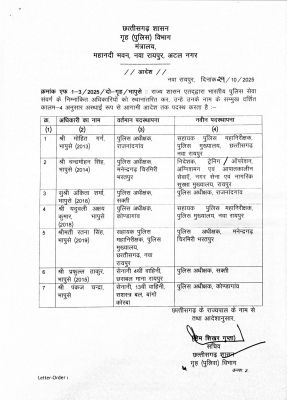 छत्तीसगढ़ शासन
गृह (पुलिस) विभाग
मंत्रालय,
महानदी भवन, नवा रायपुर, अटल नगर
// आदेश //
नवा रायपुर, दिनांक 29/10/2025
क्रमांक एफ 1-3/2025/दो-गृह/भापुसे : राज्य शासन एतद्द्वारा भारतीय पुलिस सेवा
संवर्ग के निम्नांकित अधिकारियों को स्थानांतरित कर, उन्हें उनके नाम के सम्मुख दर्शित
कालम-4 अनुसार अस्थाई रूप से आगामी आदेश तक पदस्थ करता है :-
क्र. अधिकारी का नाम वर्तमान पदस्थापना नवीन पदस्थापना
(1) (2) (3) (4)
1 श्री मोहित गर्ग, भापुसे (2013) पुलिस अधीक्षक, राजनांदगांव सहायक पुलिस महानिरीक्षक, पुलिस मुख्यालय, छत्तीसगढ़ नवा रायपुर
2 श्री चन्द्रमोहन सिंह, भापुसे (2014) पुलिस अधीक्षक, मनेन्द्रगढ़ चिरमिरी भरतपुर निदेशक, ट्रेनिंग / ऑपरेशन, अग्निशमन एवं आपातकालीन सेवाएँ, नगर सेना एवं नागरिक सुरक्षा मुख्यालय, रायपुर
3 सुश्री अंकिता शर्मा, भापुसे (2018) पुलिस अधीक्षक, सक्ती पुलिस अधीक्षक, राजनांदगांव
4 श्री यदुवली अक्षय कुमार, भापुसे (2018) पुलिस अधीक्षक, कोण्डागांव सहायक पुलिस महानिरीक्षक, पुलिस मुख्यालय, नवा रायपुर
5 श्रीमती रतना सिंह, भापुसे (2019) सहायक पुलिस महानिरीक्षक, पुलिस मुख्यालय, छत्तीसगढ़, नवा रायपुर पुलिस अधीक्षक, मनेन्द्रगढ़ चिरमिरी भरतपुर
6 श्री प्रफुल्ल ठाकुर, भापुसे (2015) सेनानी 4थी वाहिनी, छसबल माना रायपुर पुलिस अधीक्षक, सक्ती
7 श्री पंकज चन्द्रा, भापुसे सेनानी, 13वीं वाहिनी, सशस्त्र बल, बांगो कोरबा पुलिस अधीक्षक, कोण्डागांव
छत्तीसगढ़ के राज्यपाल के नाम से
तथा आदेशानुसार,
(हिम शिखर गुप्ता)
सचिव
छत्तीसगढ़ शासन
गृह (पुलिस) विभाग
Letter-Order :